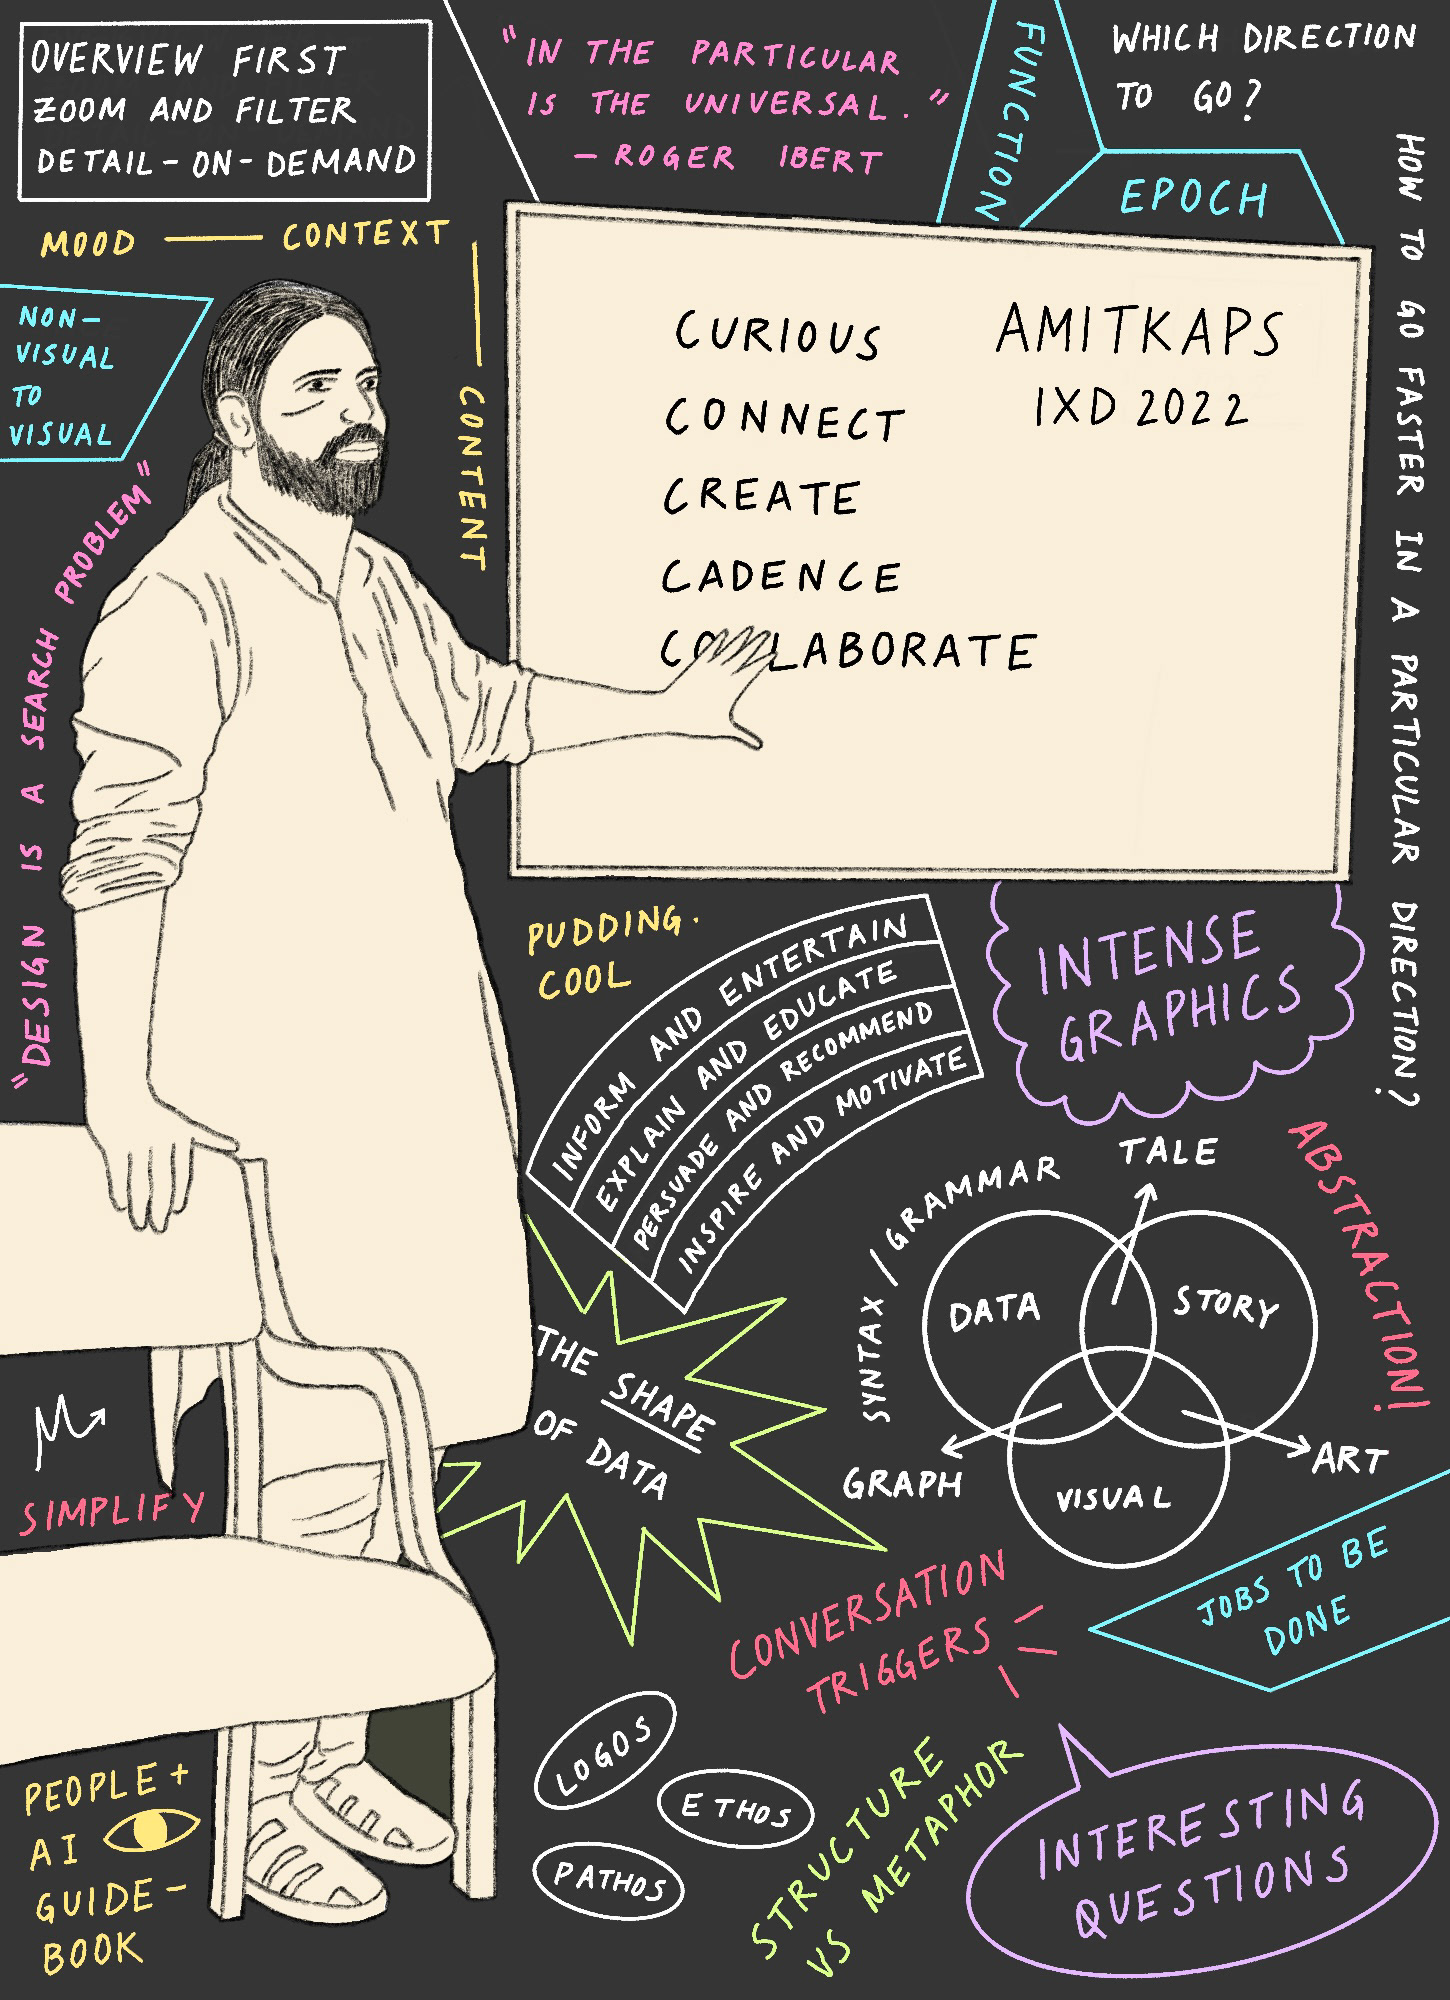 OVERVIEW FIRST
ZOOM AND FILTER
DETAIL-ON-DEMAND
"IN THE PARTICULAR
IS THE UNIVERSAL."
— ROGER IBERT
FUNCTION
WHICH DIRECTION
TO GO?
EPOCH
HOW TO GO FASTER IN A PARTICULAR DIRECTION?
MOOD — CONTEXT — CONTENT
NON-
VISUAL
TO
VISUAL
"DESIGN IS A SEARCH PROBLEM"
CURIOUS
CONNECT
CREATE
CADENCE
COLLABORATE
AMITKAPS
IXD 2022
PUDDING.
COOL
INFORM AND ENTERTAIN
EXPLAIN AND EDUCATE
PERSUADE AND RECOMMEND
INSPIRE AND MOTIVATE
INTENSE
GRAPHICS
THE SHAPE
OF DATA
SYNTAX / GRAMMAR
TALE
DATA
STORY
GRAPH
VISUAL
ART
ABSTRACTION!
SIMPLIFY
JOBS TO BE
DONE
CONVERSATION
TRIGGERS
LOGOS
ETHOS
PATHOS
STRUCTURE
VS METAPHOR
INTERESTING
QUESTIONS
PEOPLE +
AI
GUIDE-
BOOK